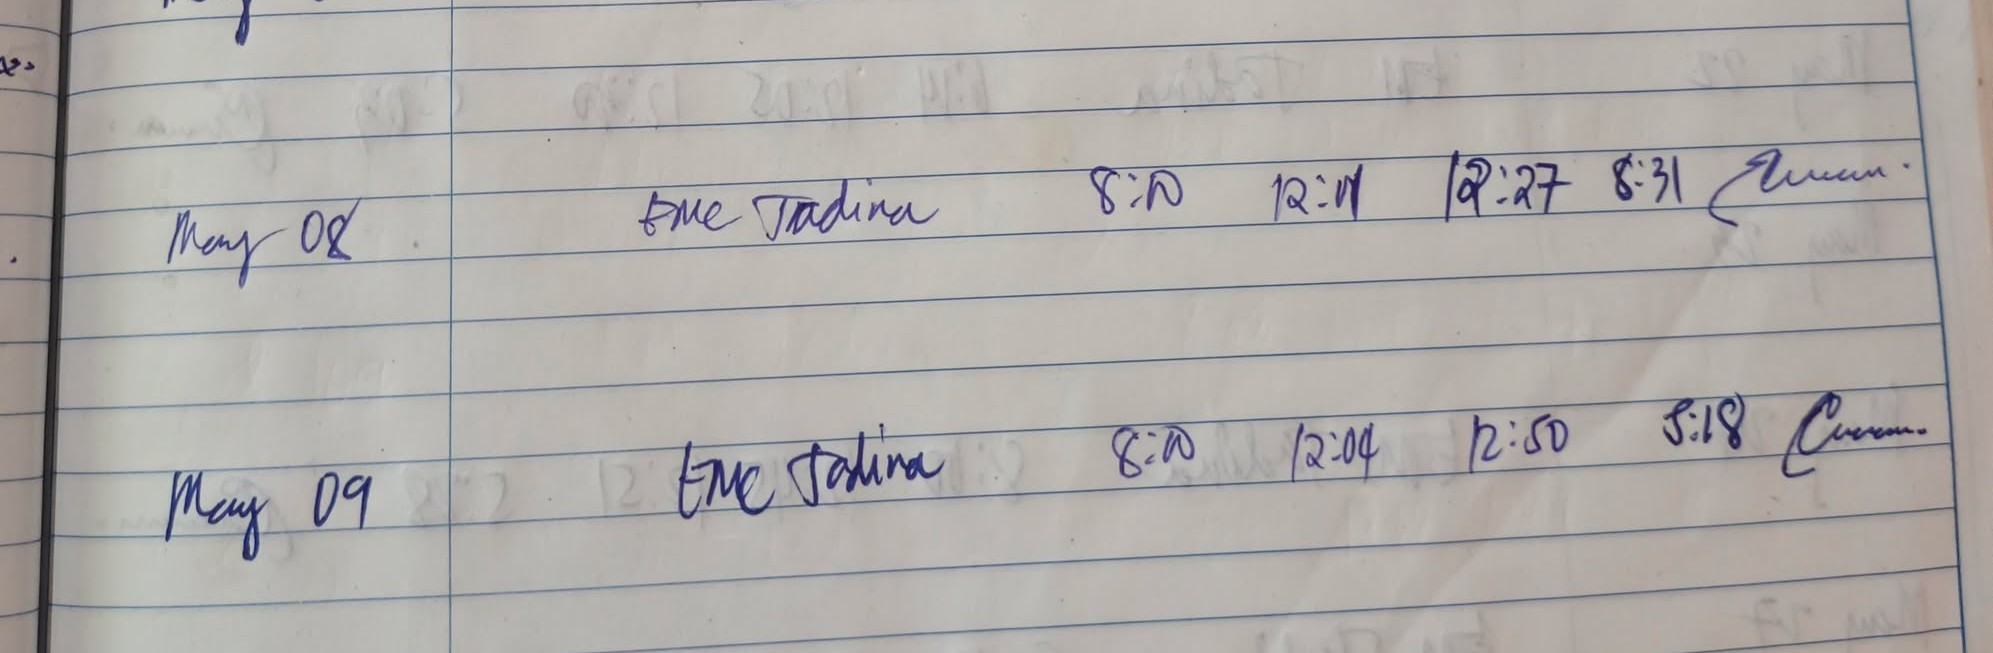 May 08 EMC Tadina 8:00 12:01 12:27 8:31
May 09 EMC Tadina 8:00 12:04 12:50 5:18